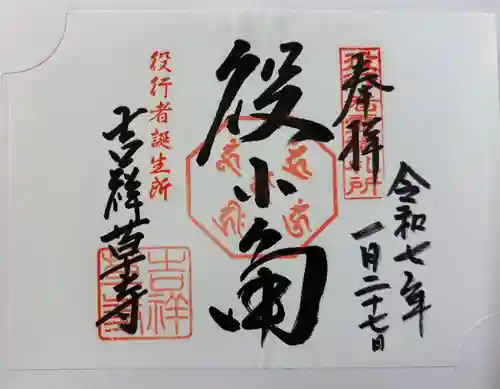 奉拝
令和七年
一月二十七日
役小角
役行者誕生所
吉祥草寺
吉祥